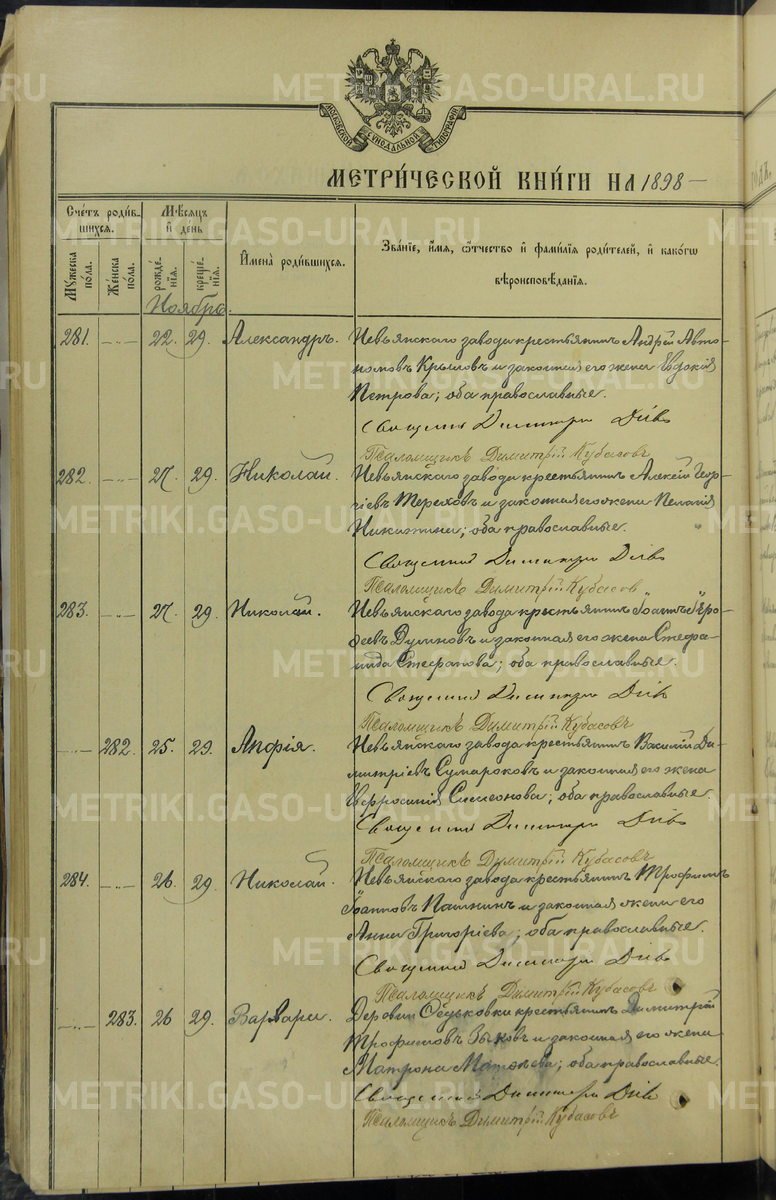 METRIKI.GASO-URAL.RU
МОСКОВСКОЙ СѴНОДАЛЬНОЙ ТИПОГРАФІИ
МЕТРИ́ЧЕСКОЙ КНИ́ГИ НА 1898 —
Сче́тъ роди́в-
шихся.
Мѣ́сяцъ
и҆ де́нь
И҆мена̀ роди́вшихся.
Зва́нїе, и҆́мя, ѻ҆́тчество и҆ фами́лїя роди́телей, и҆ како́гѡ
вѣроисповѣ́данїя.
Мꙋ́жеска по́ла.
Же́нска по́ла.
рожде́нїя.
креще́нїя.
Ноябрь.
281. —„— 22. 29. Александръ. Невьянскаго завода крестьянинъ Андрей Авто-
номовъ Крыловъ и законная его жена Евдокія
Петрова; оба православные.
Священникъ Димитрій
Псаломщикъ Димитрій Кубасовъ
282. —„— 27. 29. Николай. Невьянскаго завода крестьянинъ Алексій Геор-
гіевъ Тереховъ и законная его жена Пелагія
Никитина; оба православные.
Священникъ Димитрій
Псаломщикъ Димитрій Кубасов
283. —„— 27. 29. Николай. Невьянскаго завода крестьянинъ Іоаннъ
и законная его жена Стефа-
нида Стефанова; оба православные.
Священникъ Димитрій
Псаломщикъ Димитрій Кубасовъ
—„— 282. 25. 29. Анфія. Невьянскаго завода крестьянинъ Василій Ди-
митріевъ Сумароковъ и законная его жена
Евфросинія Симеонова; оба православные.
Священникъ Димитрій
Псаломщикъ Димитрій Кубасовъ
284. —„— 26. 29. Николай. Невьянскаго завода крестьянинъ Трофимъ
Іоанновъ и законная жена его
Анна Григоріева; оба православные.
Священникъ Димитрій
Псаломщикъ Димитрій Кубасовъ
—„— 283. 26 29. Варвара. Деревни Федьковки крестьянинъ Димитрій
Трофимовъ Зыковъ и законная его жена
Матрона Матвѣева; оба православные.
Священникъ Димитрій
Псаломщикъ Димитрій Кубасовъ